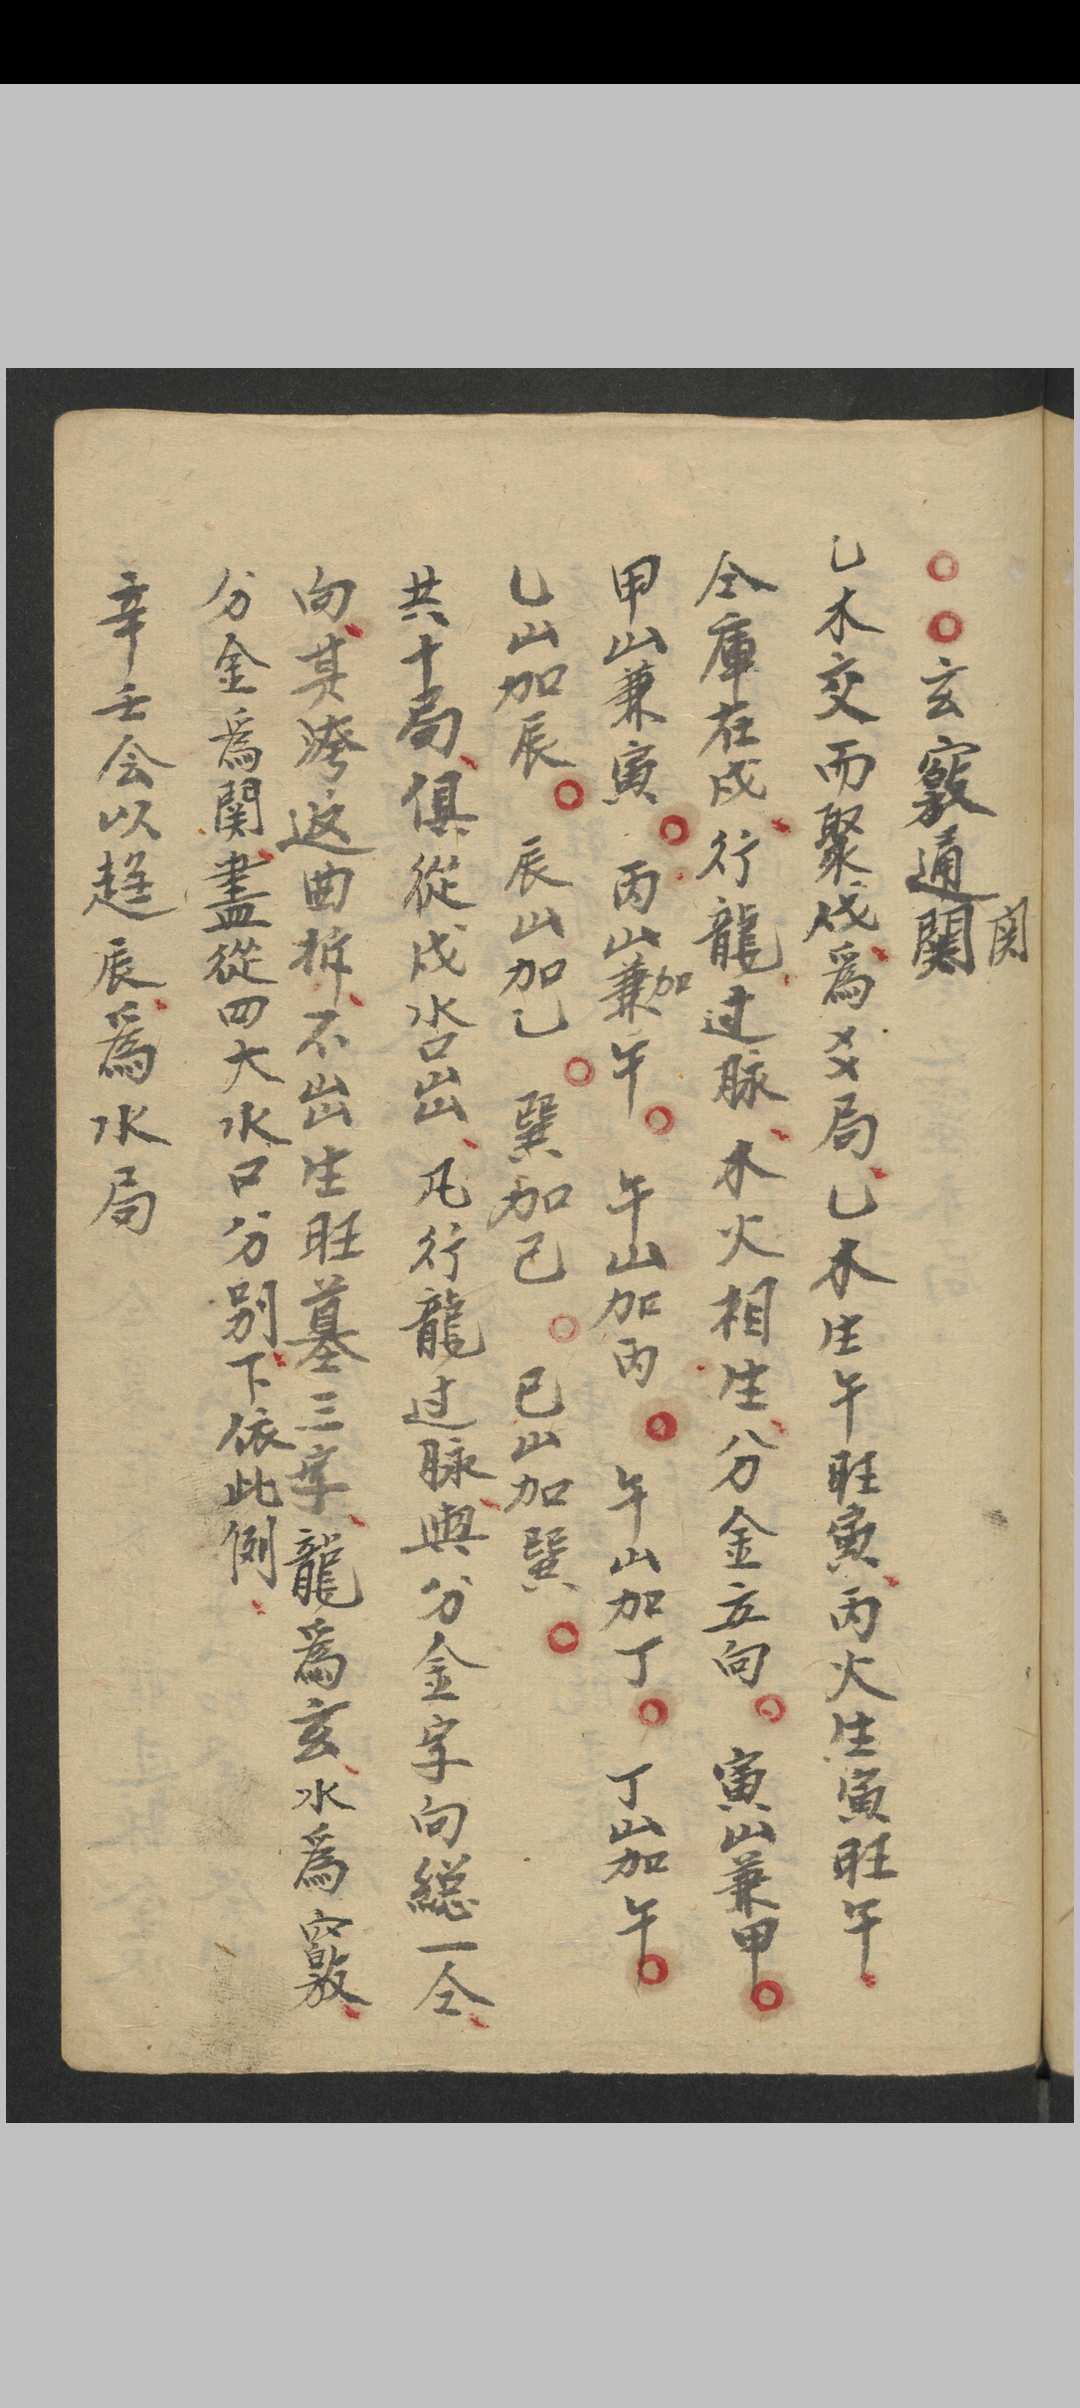 玄竅通関
関
乙木交而聚戌為火局乙木生午旺寅丙火生寅旺午
仝庫在戌行龍过脉木火相生分金立向寅山兼甲
甲山兼寅丙山兼加午午山加丙午山加丁丁山加午
乙山加辰辰山加乙巽加己巳山加巽
共十局俱從戌水口出凡行龍过脉與分金字向総一仝
向其返曲折不出生旺墓三字龍為玄水為竅
分金為関盡從四大水口分别下依此例
辛壬会以趋辰為水局